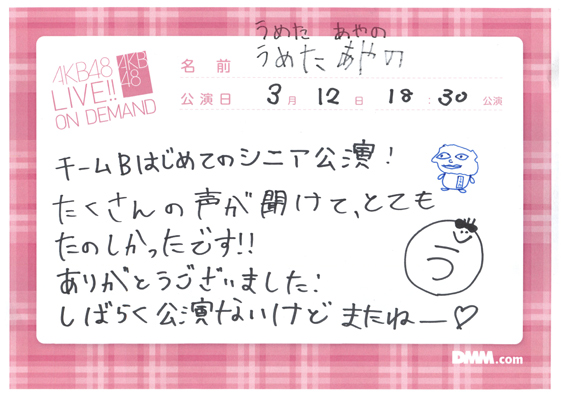 うめた あやの
AKB48
LIVE!!
ON DEMAND
AKB
48
名前 うめた あやの
公演日 3月 12日 18:30 公演
チームBはじめてのシニア公演!
たくさんの声が聞けて、とても
たのしかったです!!
う
ありがとうございました!
しばらく公演ないけど またねー♡
DMM.com